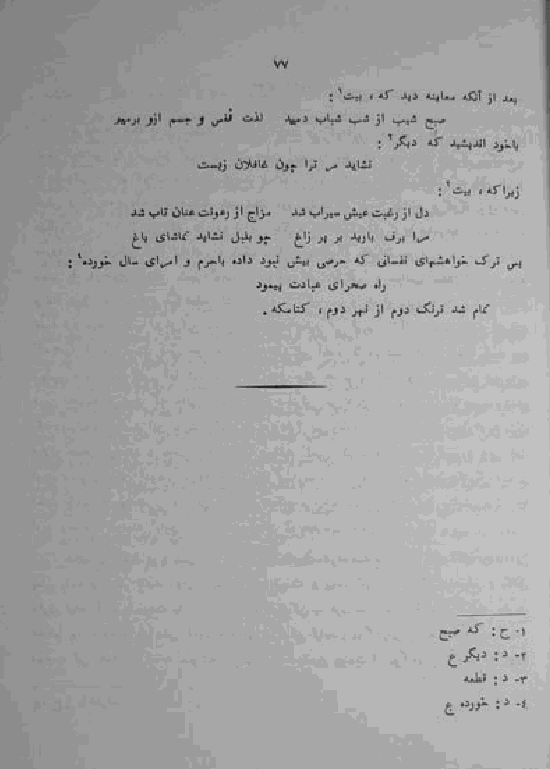 ۷۷
بعد از آنکه معاینه دید که ، بیت۱ :
صبح شیب از شب شباب دمید لذت نفس و جسم ازو برمید
باخود اندیشید که دیگر۲ :
نشاید مر ترا چون غافلان زیست
زیرا که ، بیت۳ :
دل از رغبت عیش سیراب شد مزاج از رعونت عنان تاب شد
مرا برف بارید بر پر زاغ چو بلبل نشاید تماشای باغ
پس ترک خواهشهای نفسانی که مرضی بیش نبود داده باحرم و امرای سال خورده۴ :
راه صحرای عبادت پیمود
تمام شد ترنگ دوم از نهر دوم ، کتامکه .
۱- ح : که صبح
۲- د : دیگر ع
۳- د : قطعه
٤- د : خورده ع